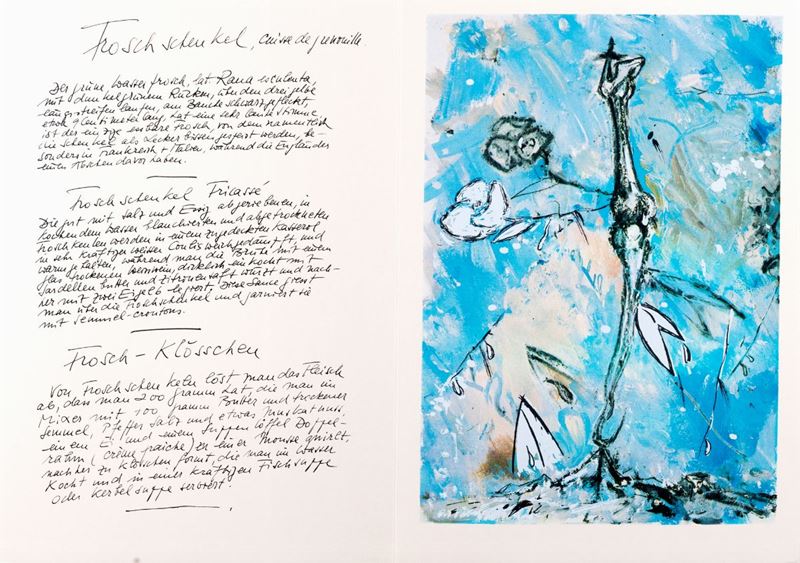 Froschschenkel, cuisse de grenouille.
Der grüne Wasserfrosch, lat. Rana esculenta,
mit dunkelgrünem Rücken, über den drei gelbe
Längsstreifen laufen, am Bauche schwarzgefleckt,
etwa 9 Centimeter lang, hat eine sehr laute Stimme
ist der einzige essbare Frosch, von dem namentlich
die Schenkel als Leckerbissen gespeist werden, be-
sonders in Frankreich + Italien, während die Engländer
einen Abscheu davor haben.
Froschschenkel Fricassé
Die erst mit Salz und Essig abgeriebenen, in
kochendem Wasser blanchierten und abgetrockneten
Froschkeulen werden in einem zugedeckten Kasserol
in sehr kräftiger weisser Coulis weichgedämpft, und
warm gehalten, während man die Brühe mit einem
Glas trockenen Weisswein, dicklich einkocht mit
Sardellenbutter und Zitronensaft würzt und nach-
her mit zwei Eigelb legiert. Diese Sauce giesst
man über die Froschschenkel und garniert sie
mit Semmel-croutons.
Frosch-Klösschen
Von Froschschenkeln löst man das Fleisch
ab, dass man 200 gramm hat, die man im
Mixer mit 100 gramm Butter und trockener
Semmel, Pfeffer Salz und etwas Muskatnuss,
einem Ei und einem Suppenlöffel Doppel-
rahm (crème fraiche) zu einer Mousse quirlt,
nachher zu Klösschen formt, die man im Wasser
kocht und in einer kräftigen Fischsuppe
oder Kerbelsuppe serviert.